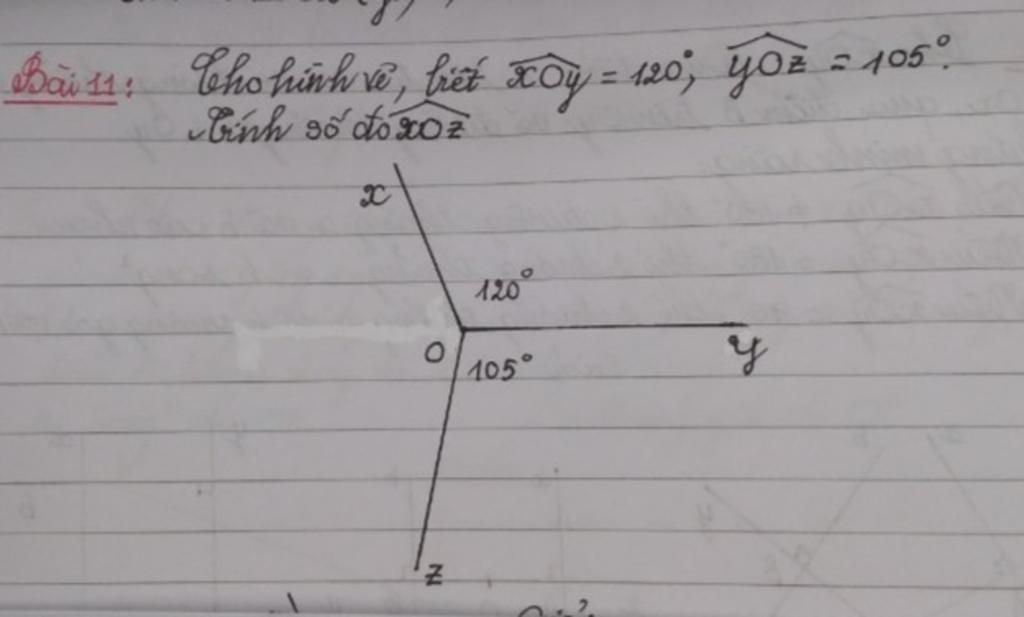 Bài 11: Cho hình vẽ, biết xOy = 120°, yOz = 105°.
Tính số đó xOz
x
120°
O
y
105°
z